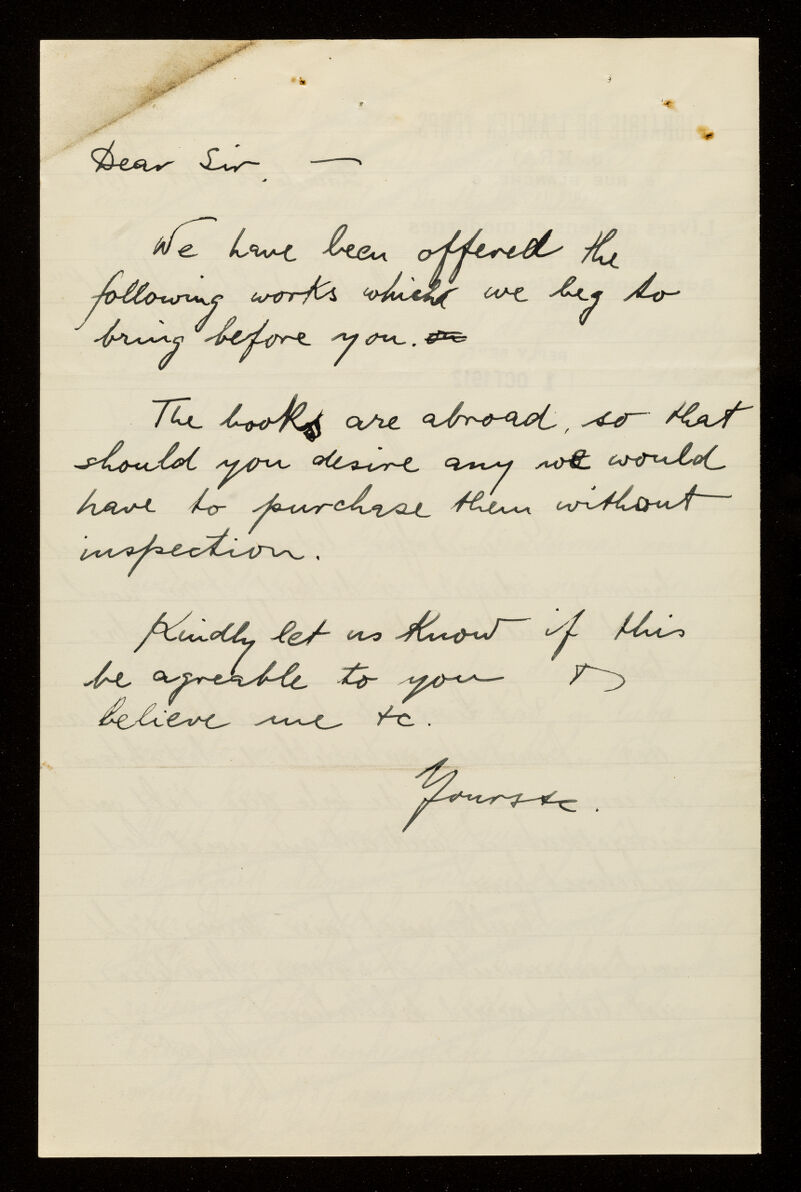 Dear Sir. —
We have been offered the
following works which we beg to
bring before you.
The books are abroad, so that
should you desire any we would
have to purchase them without
inspection.
Kindly let us know if this
be agreable to you &
believe me &c.
Yours &c.